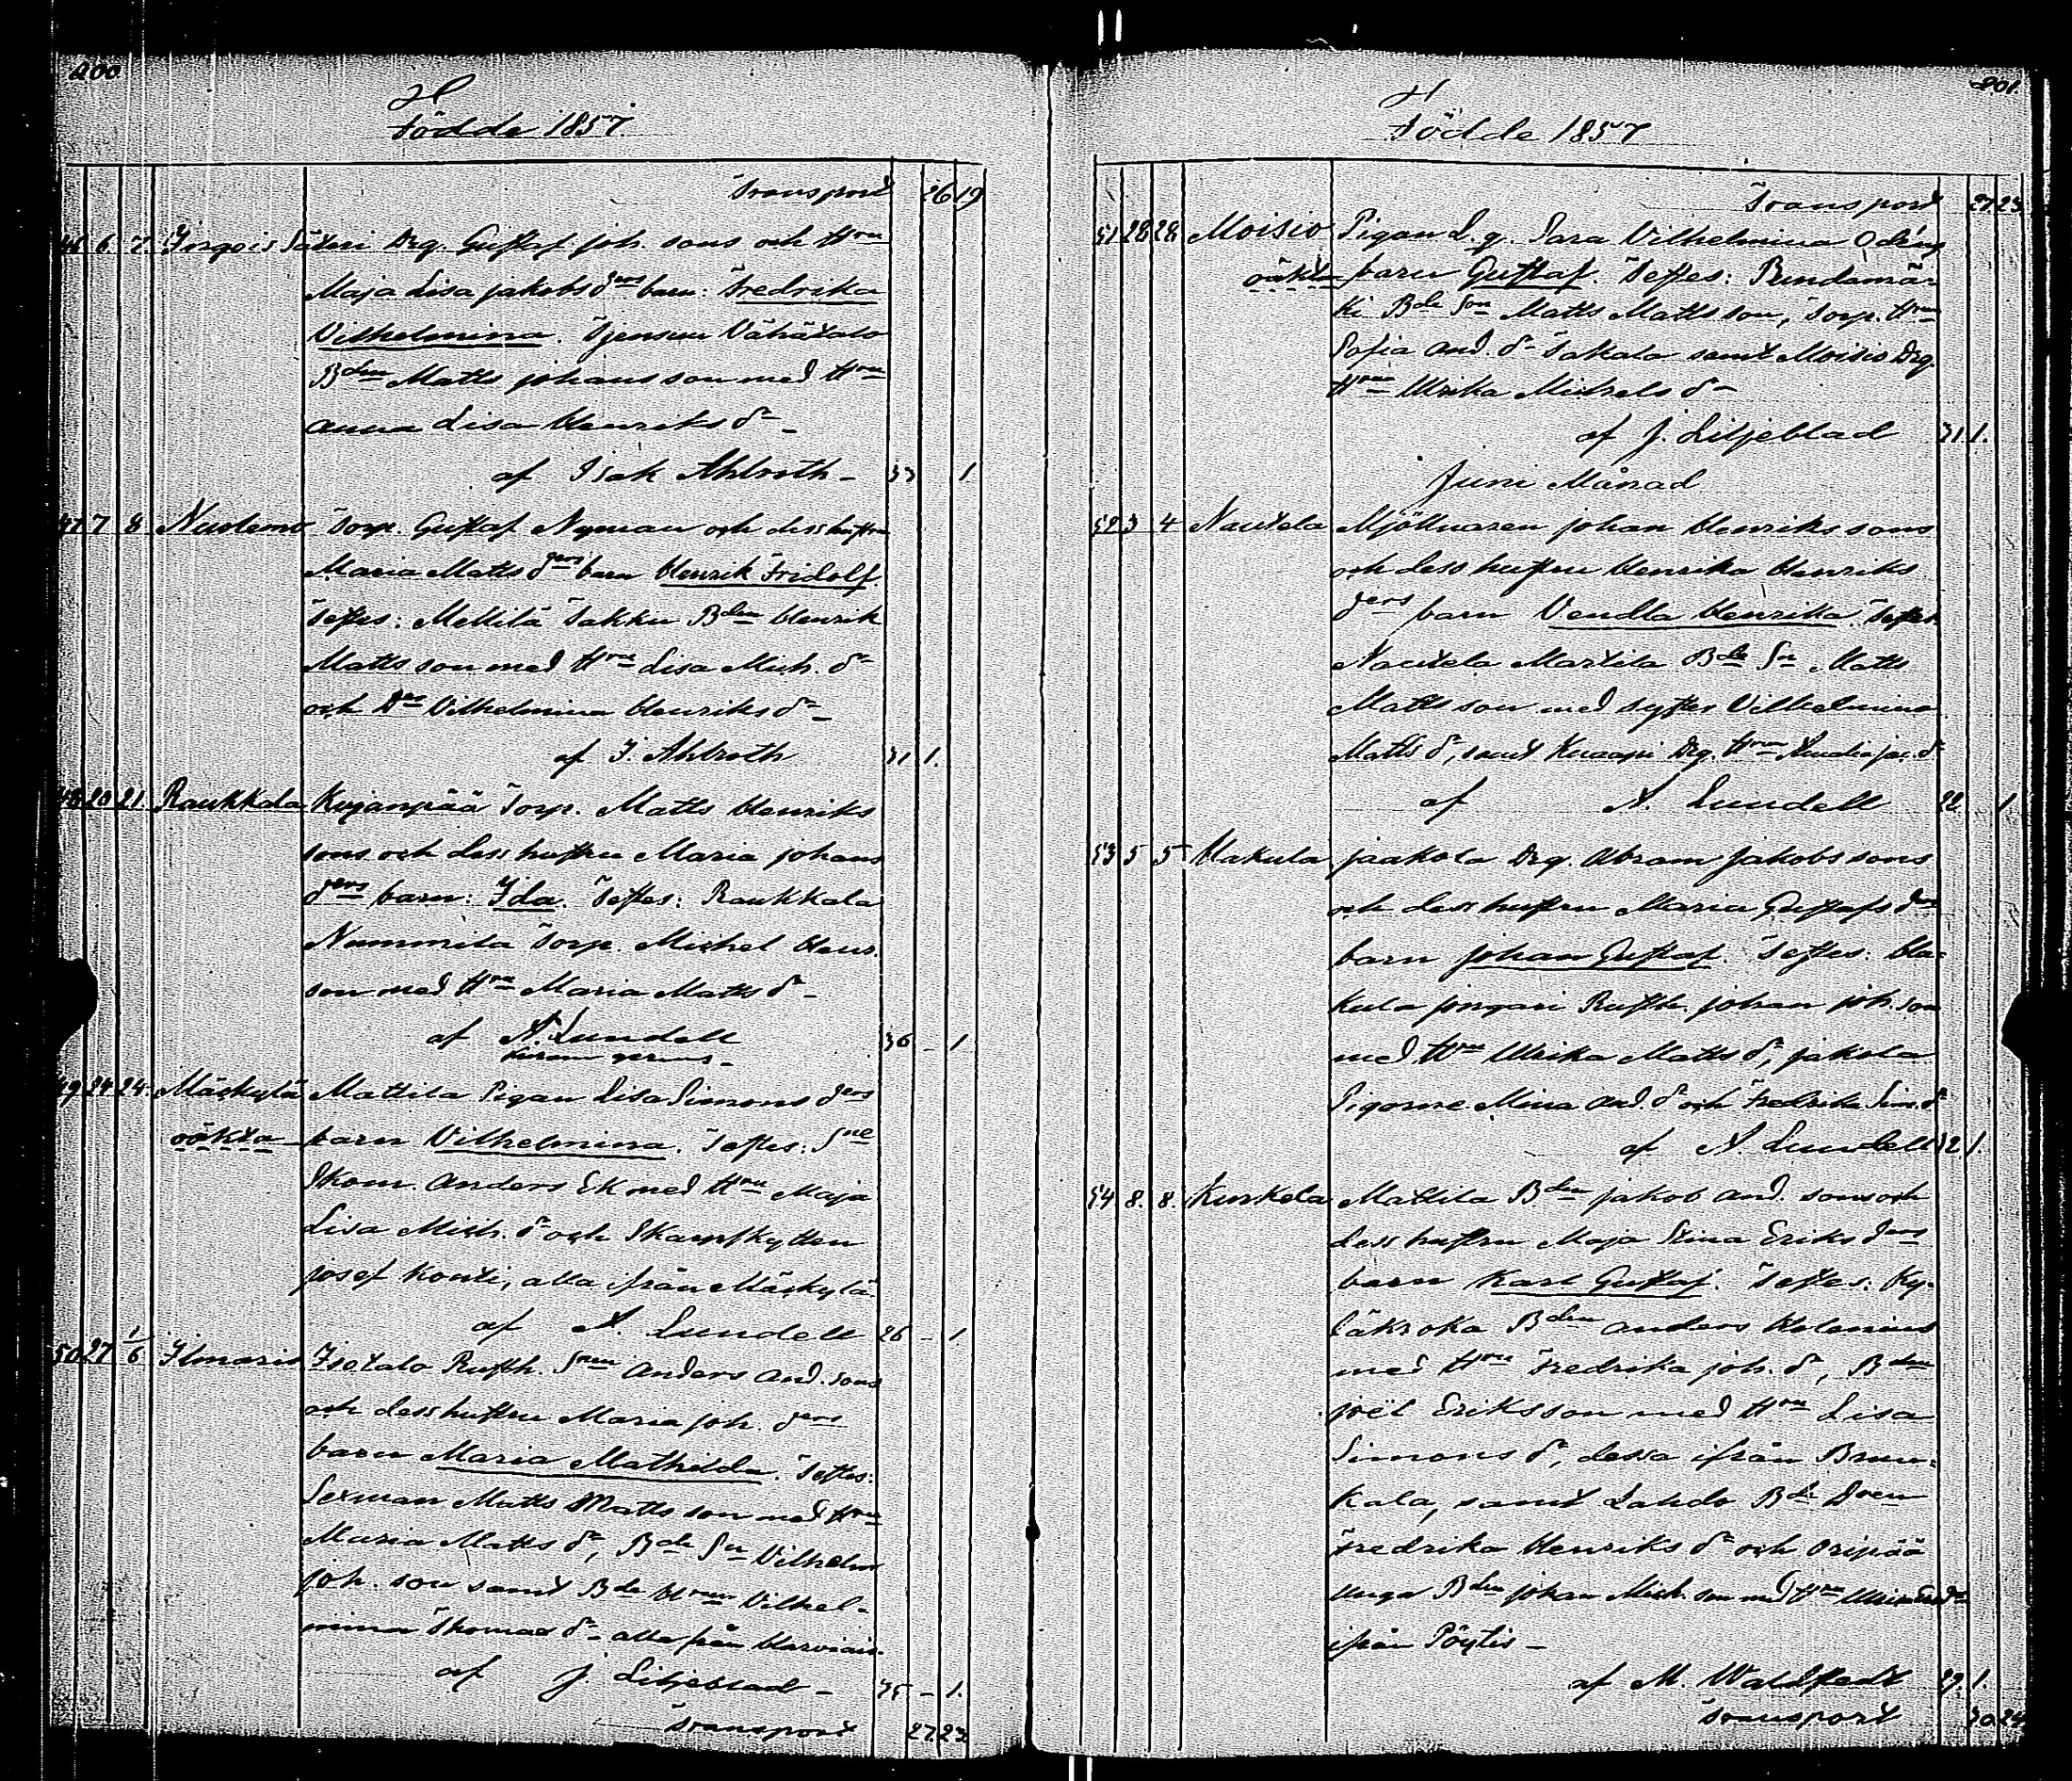 200
Födde 1857.
Transport 26 19
46 6. 7. Yrjgois Säteri Drg. Gustaf Joh. sons och Hru
Maja Lisa Jakobs drs barn: Fredrika
Vilhelmina. Tjensten Vähätalo
Bden Matts Johansson med Hru
Anna Lisa Henriks dr
af Isak Ahlroth 33 1
47 7 8 Nuolemo Torp. Gustaf Nyman och dess hustru
Maria Matts ders barn Henrik Fridolf
Testes: Mellilä Takku Bden Henrik
Matts son med Hru Lisa Mich. dr
och Drs Vilhelmina Henriks dr
af I. Ahlroth 31 1.
48 20 21. Raukkala Kujanpää Torp. Matts Henriks
sons och dess hustru Maria Johans
ders barn: Ida. Testes: Raukkala
Nummila Torp. Michel Henr.
son med Hru Maria Matts dr
af A. Lundell 36 - 1
49 24 24. Mäskylä Mattila Pigan Lisa Simons ders
oäkta barn Vilhelmina. Testes: Sne
Skom. Anders Ek med Hru Maja
Lisa Mich. dr och Skarpskytten
Josef Konti, alla ifrån Mäskylä
af A. Lundell 26 - 1
50 27 1/6 Ilmaris Isotalo Rusth. Snen Anders And. sons
och dess hustru Maria Joh. ders
barn Maria Mathilda. Testes:
Sexman Matts Mattsson med Hru
Maria Matts dr, Bde Sn Vilhelm
Joh. son samt Bde Hrun Vilhel-
mina Thomas dr alla från Harviais.
af J. Liljeblad 35 - 1.
Transport 27. 23.
201.
Födde 1857
Transport 27. 23
51 28 28. Moisio Pigan L. g. Sara Vilhelmina Oding
oäkta barn Gustaf. Testes: Rundamä-
ki Bde Son Matts Mattsson, Torp. Hru
Sofia And. dr Takala samt Moisio Drg.
Hrun Ulrika Michels dr
af J. Liljeblad 31. 1.
Juni Månad
52 3 4 Nautela Mjölnaren Johan Henriks sons
och dess hustru Henrika Henriks
ders barn Vendla Henrika. Testes
Nautela Martila Bde Sn Matts
Mattsson med syster Vilhelmina
Matts dr, samt Knaapi Drg. Hrun Amalia Jac. dr
af A. Lundell 22 1.
53 5 5 Hakula Jaakola Drg. Abram Jakobs sons
och dess hustru Maria Gustafs drs
barn Johan Gustaf. Testes: Ha-
kula Jongari Rusth. Johan Joh. son
med Hru Ulrika Matts dr, Jakola
Pigorne Mina And. dr och Fredrika Sim. dr
af A. Lundell 32. 1.
54 8. 8. Kurkela Mattila Bden Jakob And. sons och
dess hustru Maja Stina Eriks ders
barn Karl Gustaf. Testes: Ky-
läkroka Bden Anders Helenius
med Hru Fredrika Joh. dr, Bden
Joël Eriksson med Hru Lisa
Simons dr, dessa ifrån Brun-
kala, samt Lahdo Bde Doen
Fredrika Henriks dr och Oripää
Unga Bden Johan Mich. son med Hru
ifrån Pöytis
af M. Waldstedt 29. 1.
Transport 30 24